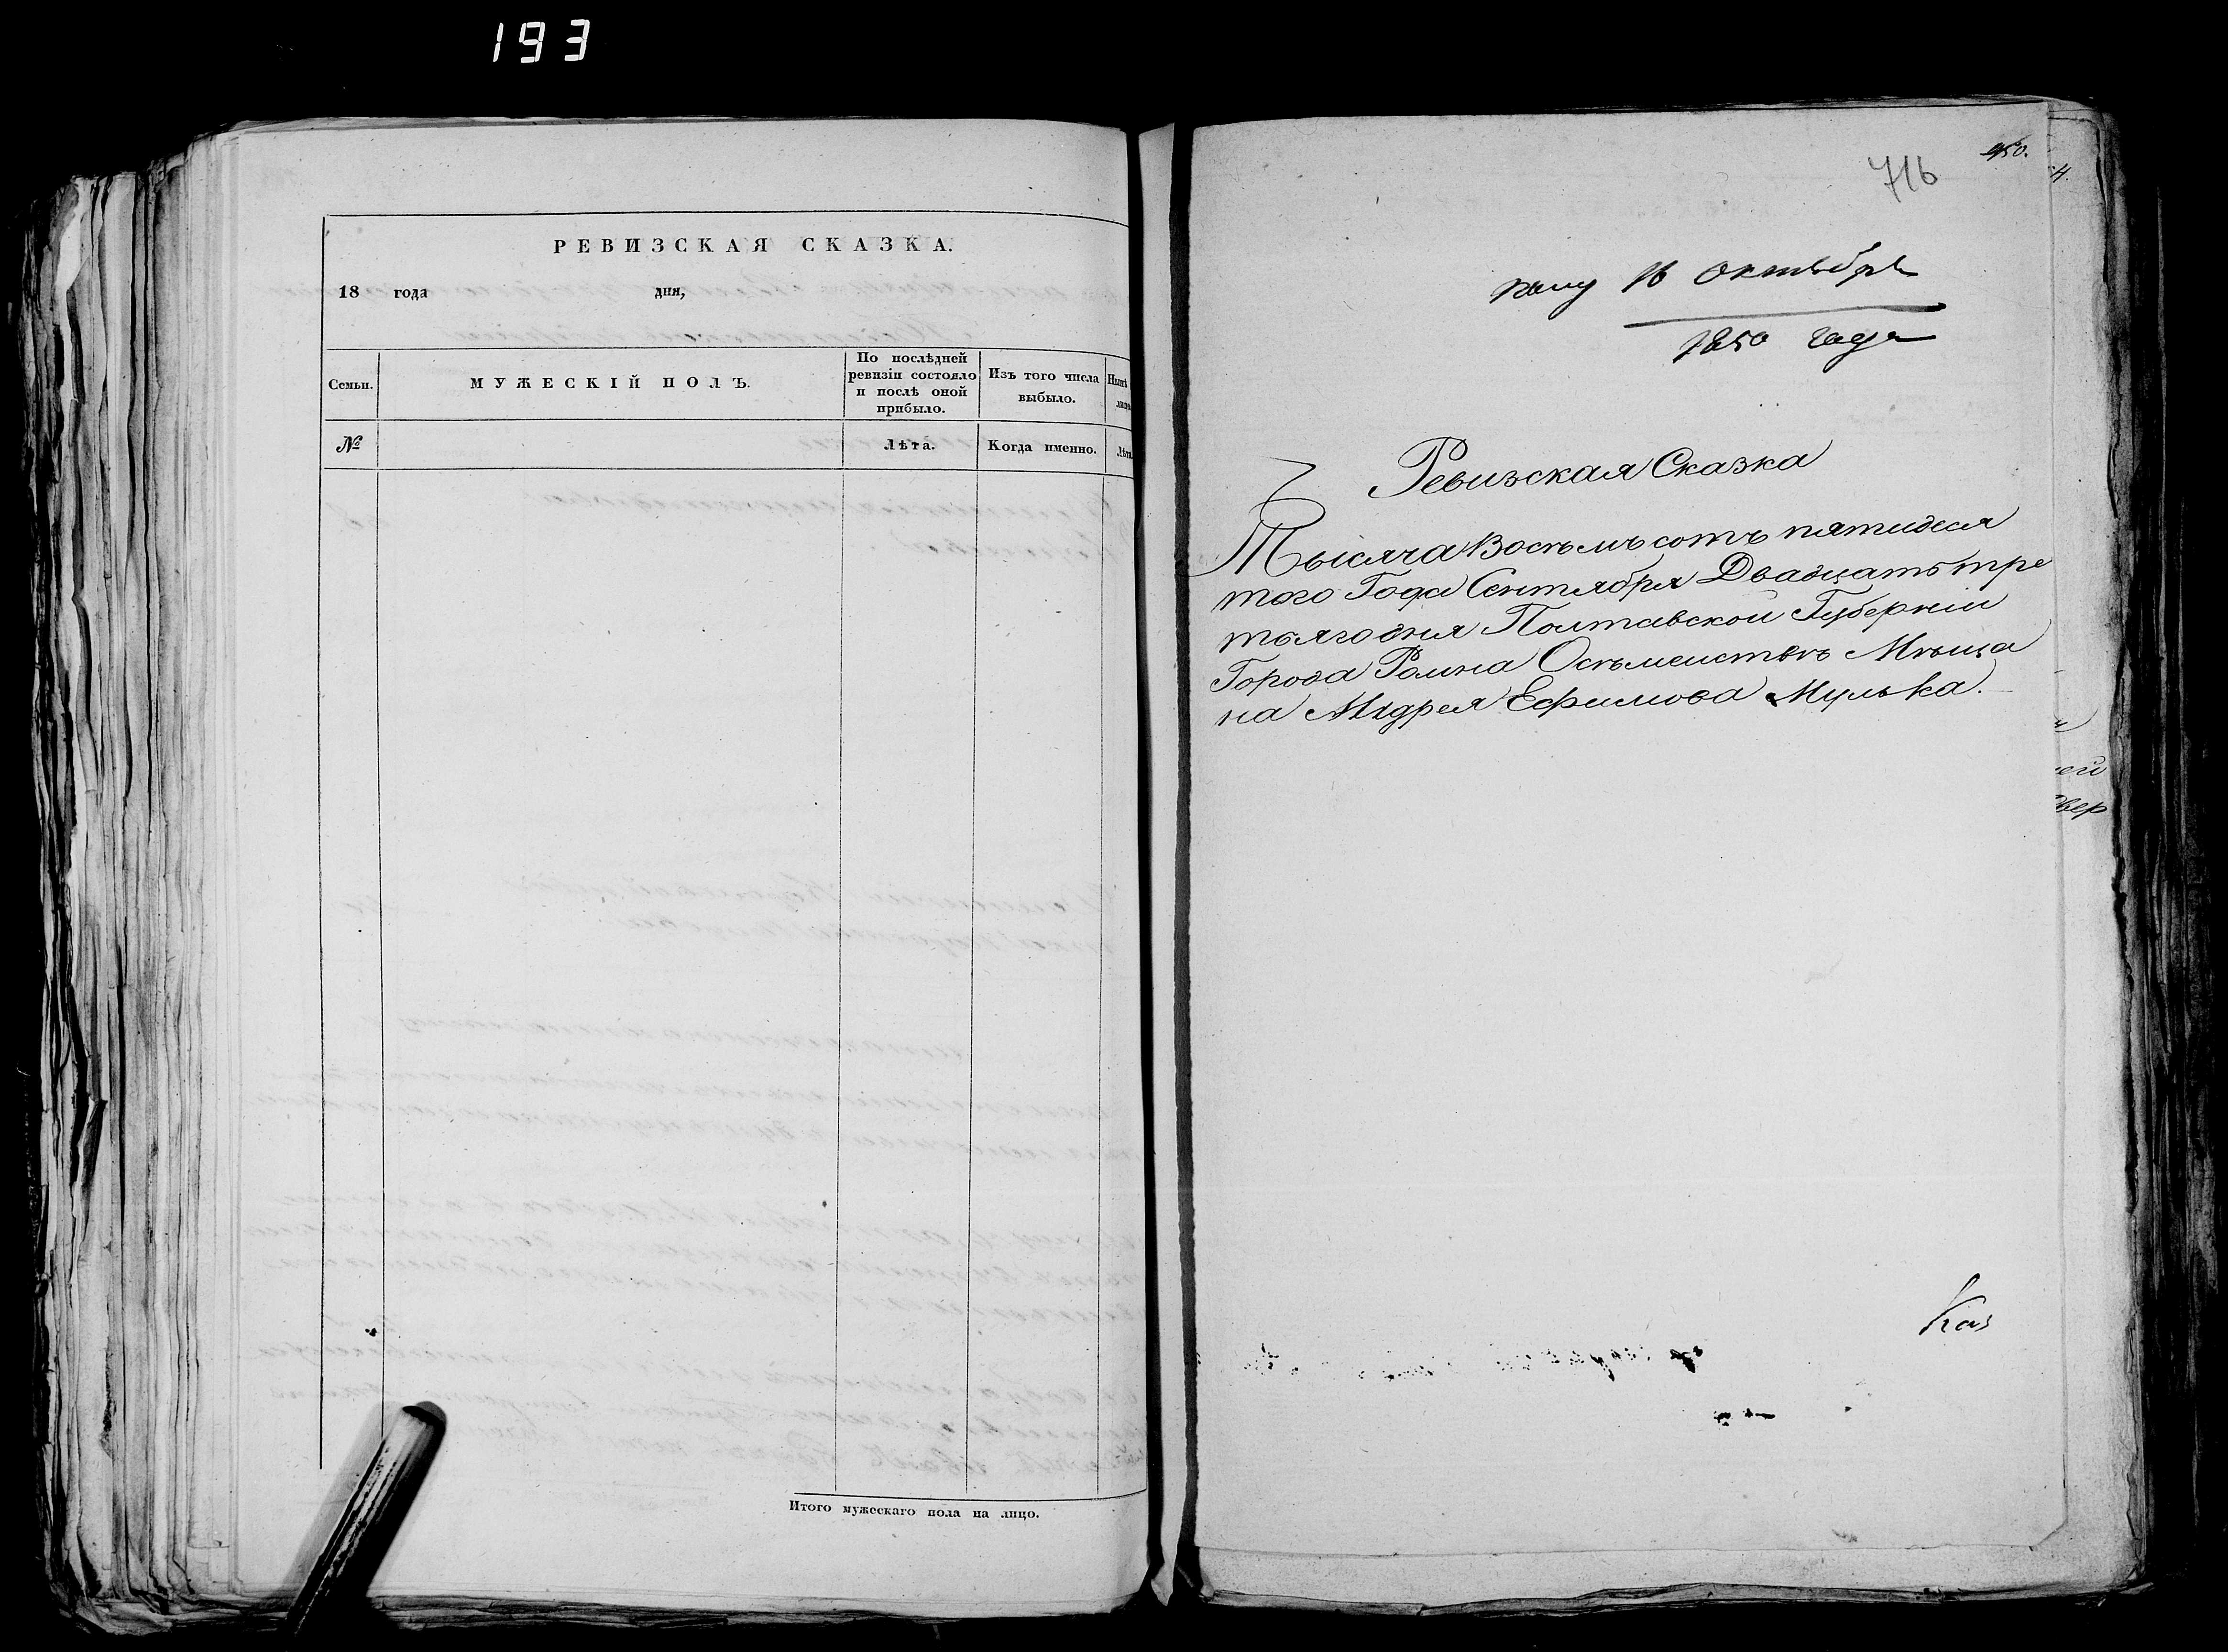 193
РЕВИЗСКАЯ СКАЗКА.
18 года дня,
Семьи.
МУЖЕСКІЙ ПОЛЪ.
По послѣдней
ревизіи состояло
и послѣ оной
прибыло.
Изъ того числа
выбыло.
№
Лѣта.
Когда именно.
Итого мужескаго пола на лицо.
716
16 Октября
1850 года
Ревизская Сказка
Тысяча Восемьсотъ пятидеся
того Года Сентября Двадцать тре
тьяго дня Полтавской Губерніи
Города Ромна Мѣща
на Андрея Ефимова Мулька.
Каз
ей